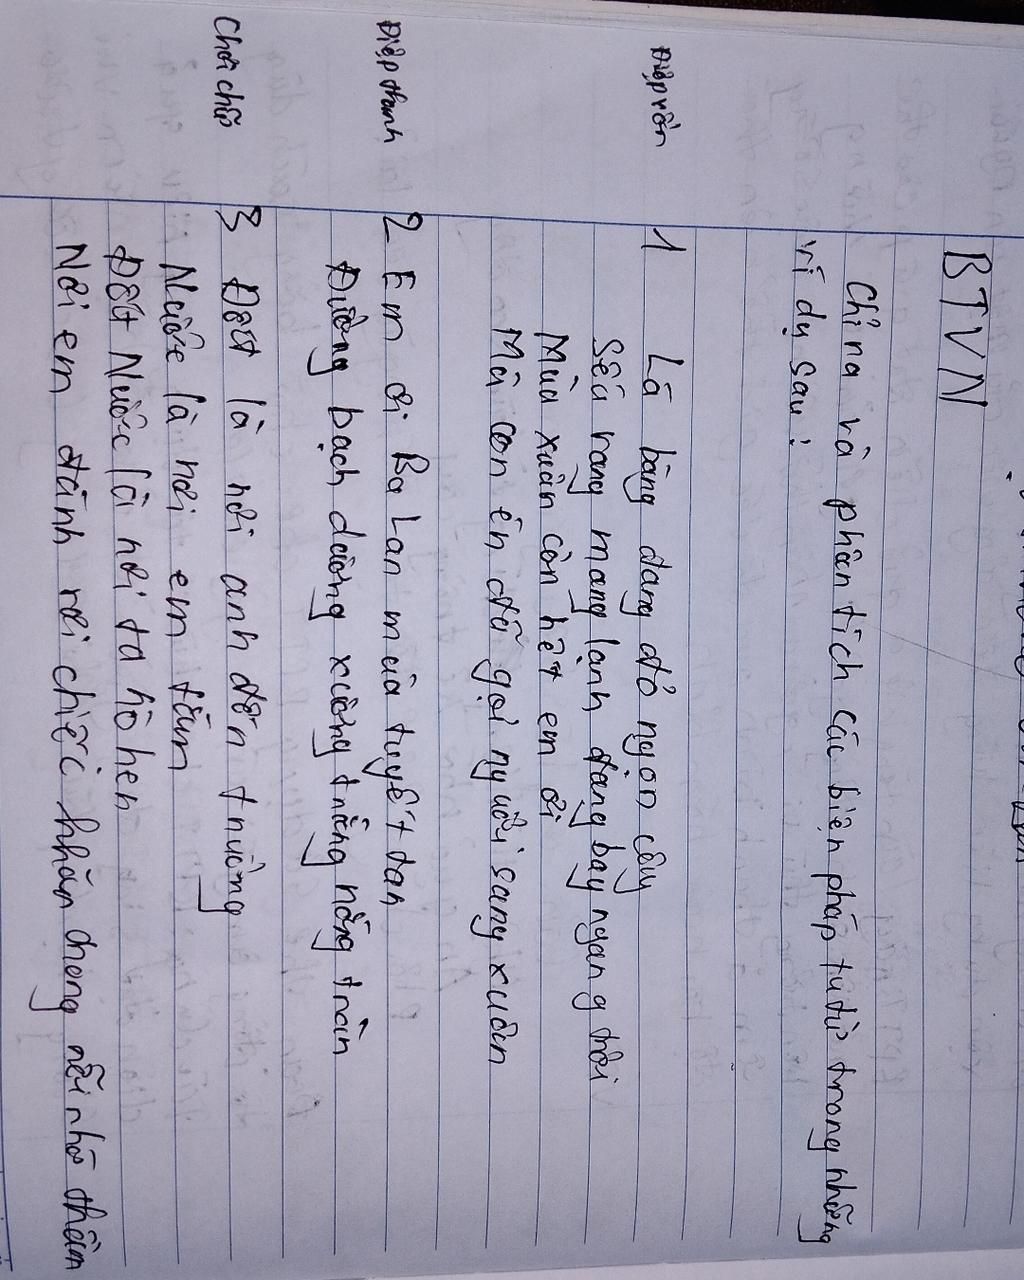 BTVN
Chỉ ra và phân tích các biện pháp tu từ trong những
ví dụ sau:
Điệp vần
1 Lá bàng đang đỏ ngọn cây
Sếu rang mang lạnh đang bay ngang trời
Mùa xuân còn hết em ơi
Mà con én đã gọi người sang xuân
Điệp thanh
2 Em ơi Ba Lan mùa tuyết tan
Đường bạch dương xương trắng nắng tràn
Chơi chữ
3 Đất là nơi anh đến trường
Nước là nơi em tắm
Đất Nước là nơi ta hò hẹn
Nơi em đánh rơi chiếc khăn trong nỗi nhớ thầm